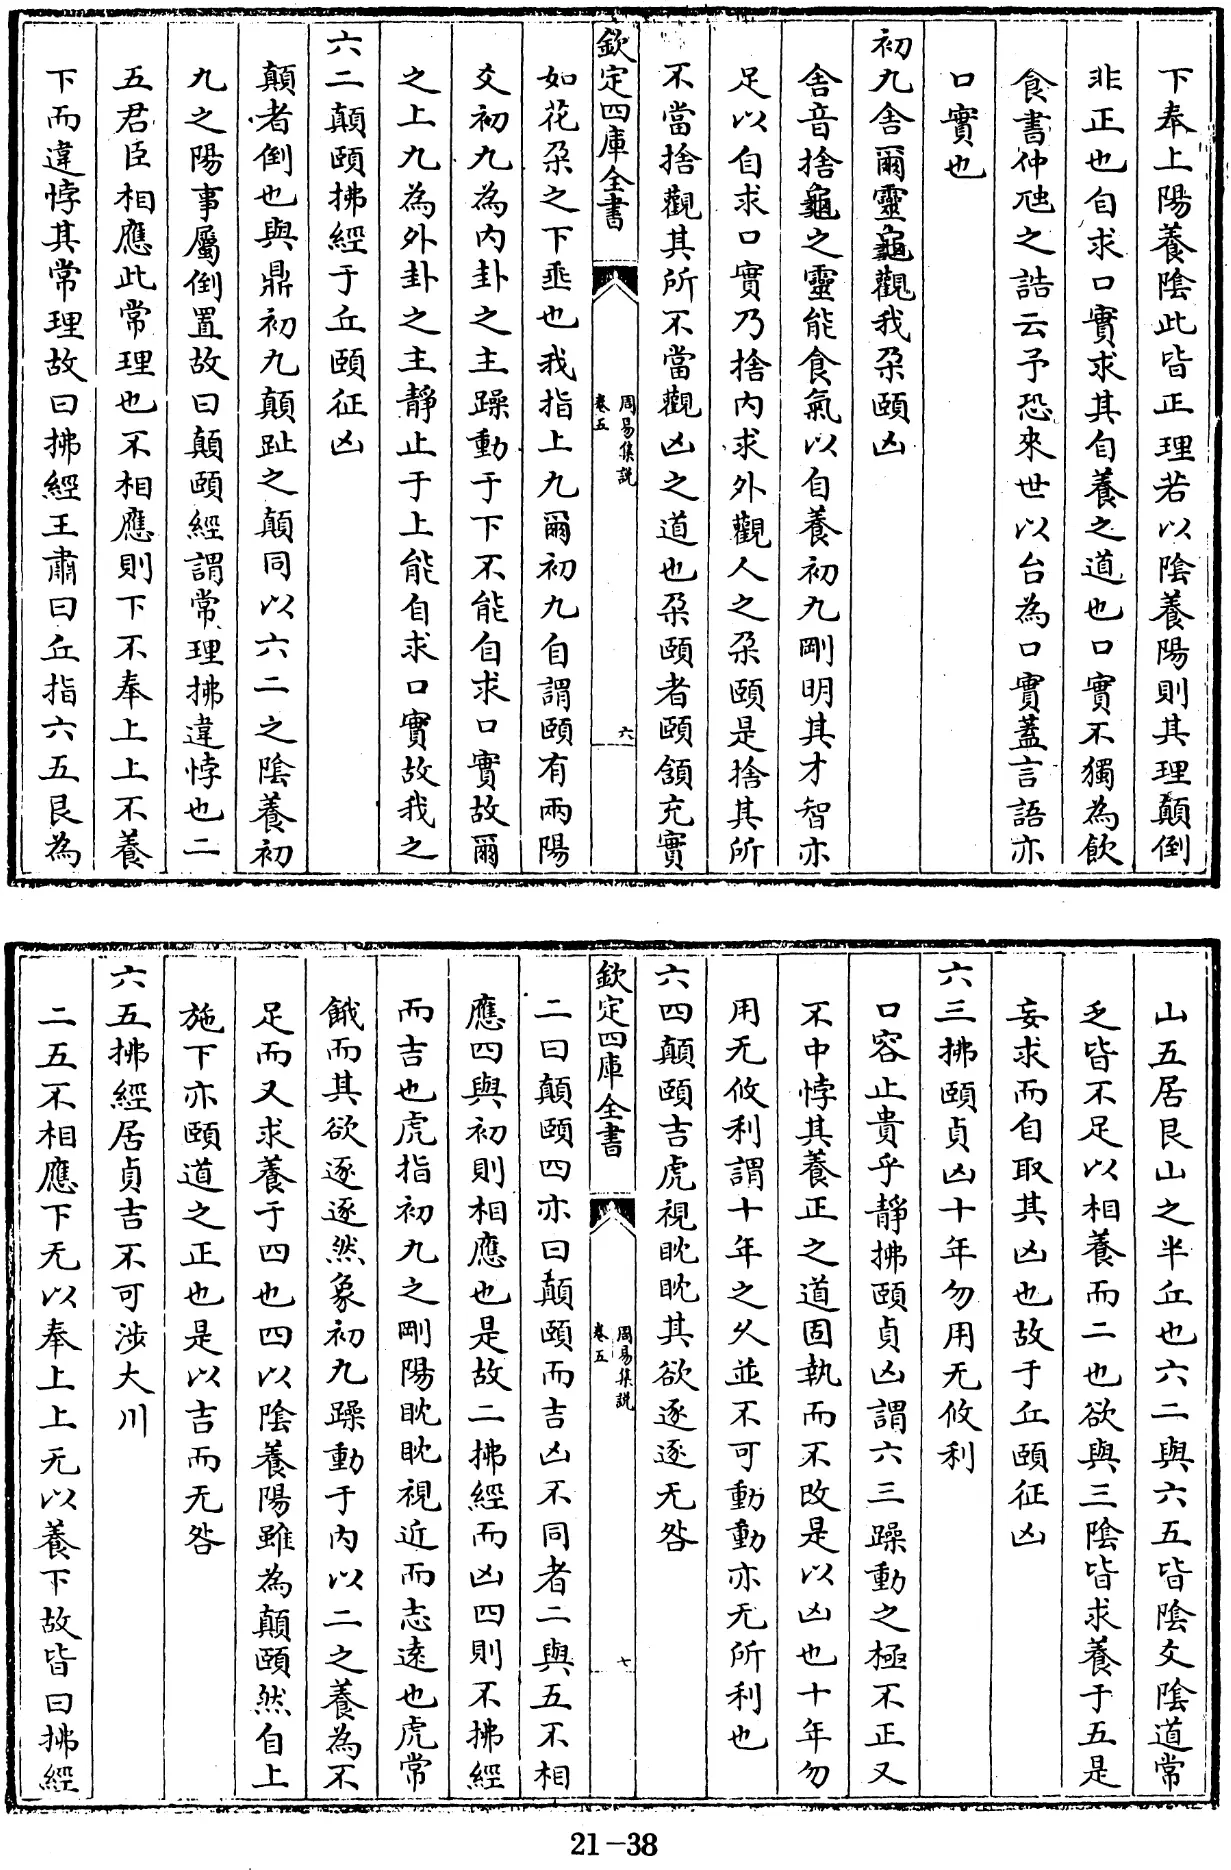 下奉上陽養陰此皆正理若以陰養陽則其理顛倒
非正也自求口實求其自養之道也口實不獨為飲
食書仲虺之誥云予恐來世以台為口實蓋言語亦
口實也
初九舍爾靈龜觀我朶頤凶
舍音捨龜之靈能食氣以自養初九剛明其才智亦
足以自求口實乃捨内求外觀人之朶頤是捨其所
不當捨觀其所不當觀凶之道也朶頤者頤頷充實
欽定四庫全書
周易集説
卷五
六
如花朶之下埀也我指上九爾初九自謂頤有兩陽
爻初九為内卦之主躁動于下不能自求口實故爾
之上九為外卦之主靜止于上能自求口實故我之
六二顛頤拂經于丘頤征凶
顛者倒也與鼎初九顛趾之顛同以六二之陰養初
九之陽事屬倒置故曰顛頤經謂常理拂違悖也二
五君臣相應此常理也不相應則下不奉上上不養
下而違悖其常理故曰拂經王肅曰丘指六五艮為
山五居艮山之半丘也六二與六五皆陰爻陰道常
乏皆不足以相養而二也欲與三陰皆求養于五是
妄求而自取其凶也故于丘頤征凶
六三拂頤貞凶十年勿用无攸利
口容止貴乎靜拂頤貞凶謂六三躁動之極不正又
不中悖其養正之道固執而不改是以凶也十年勿
用无攸利謂十年之久並不可動動亦无所利也
六四顛頤吉虎視眈眈其欲逐逐无咎
欽定四庫全書
周易集説
卷五
七
二曰顛頤四亦曰顛頤而吉凶不同者二與五不相
應四與初則相應也是故二拂經而凶四則不拂經
而吉也虎指初九之剛陽眈眈視近而志遠也虎常
餓而其欲逐逐然象初九躁動于内以二之養為不
足而又求養于四也四以陰養陽雖為顛頤然自上
施下亦頤道之正也是以吉而无咎
六五拂經居貞吉不可涉大川
二五不相應下无以奉上上无以養下故皆曰拂經
21-38